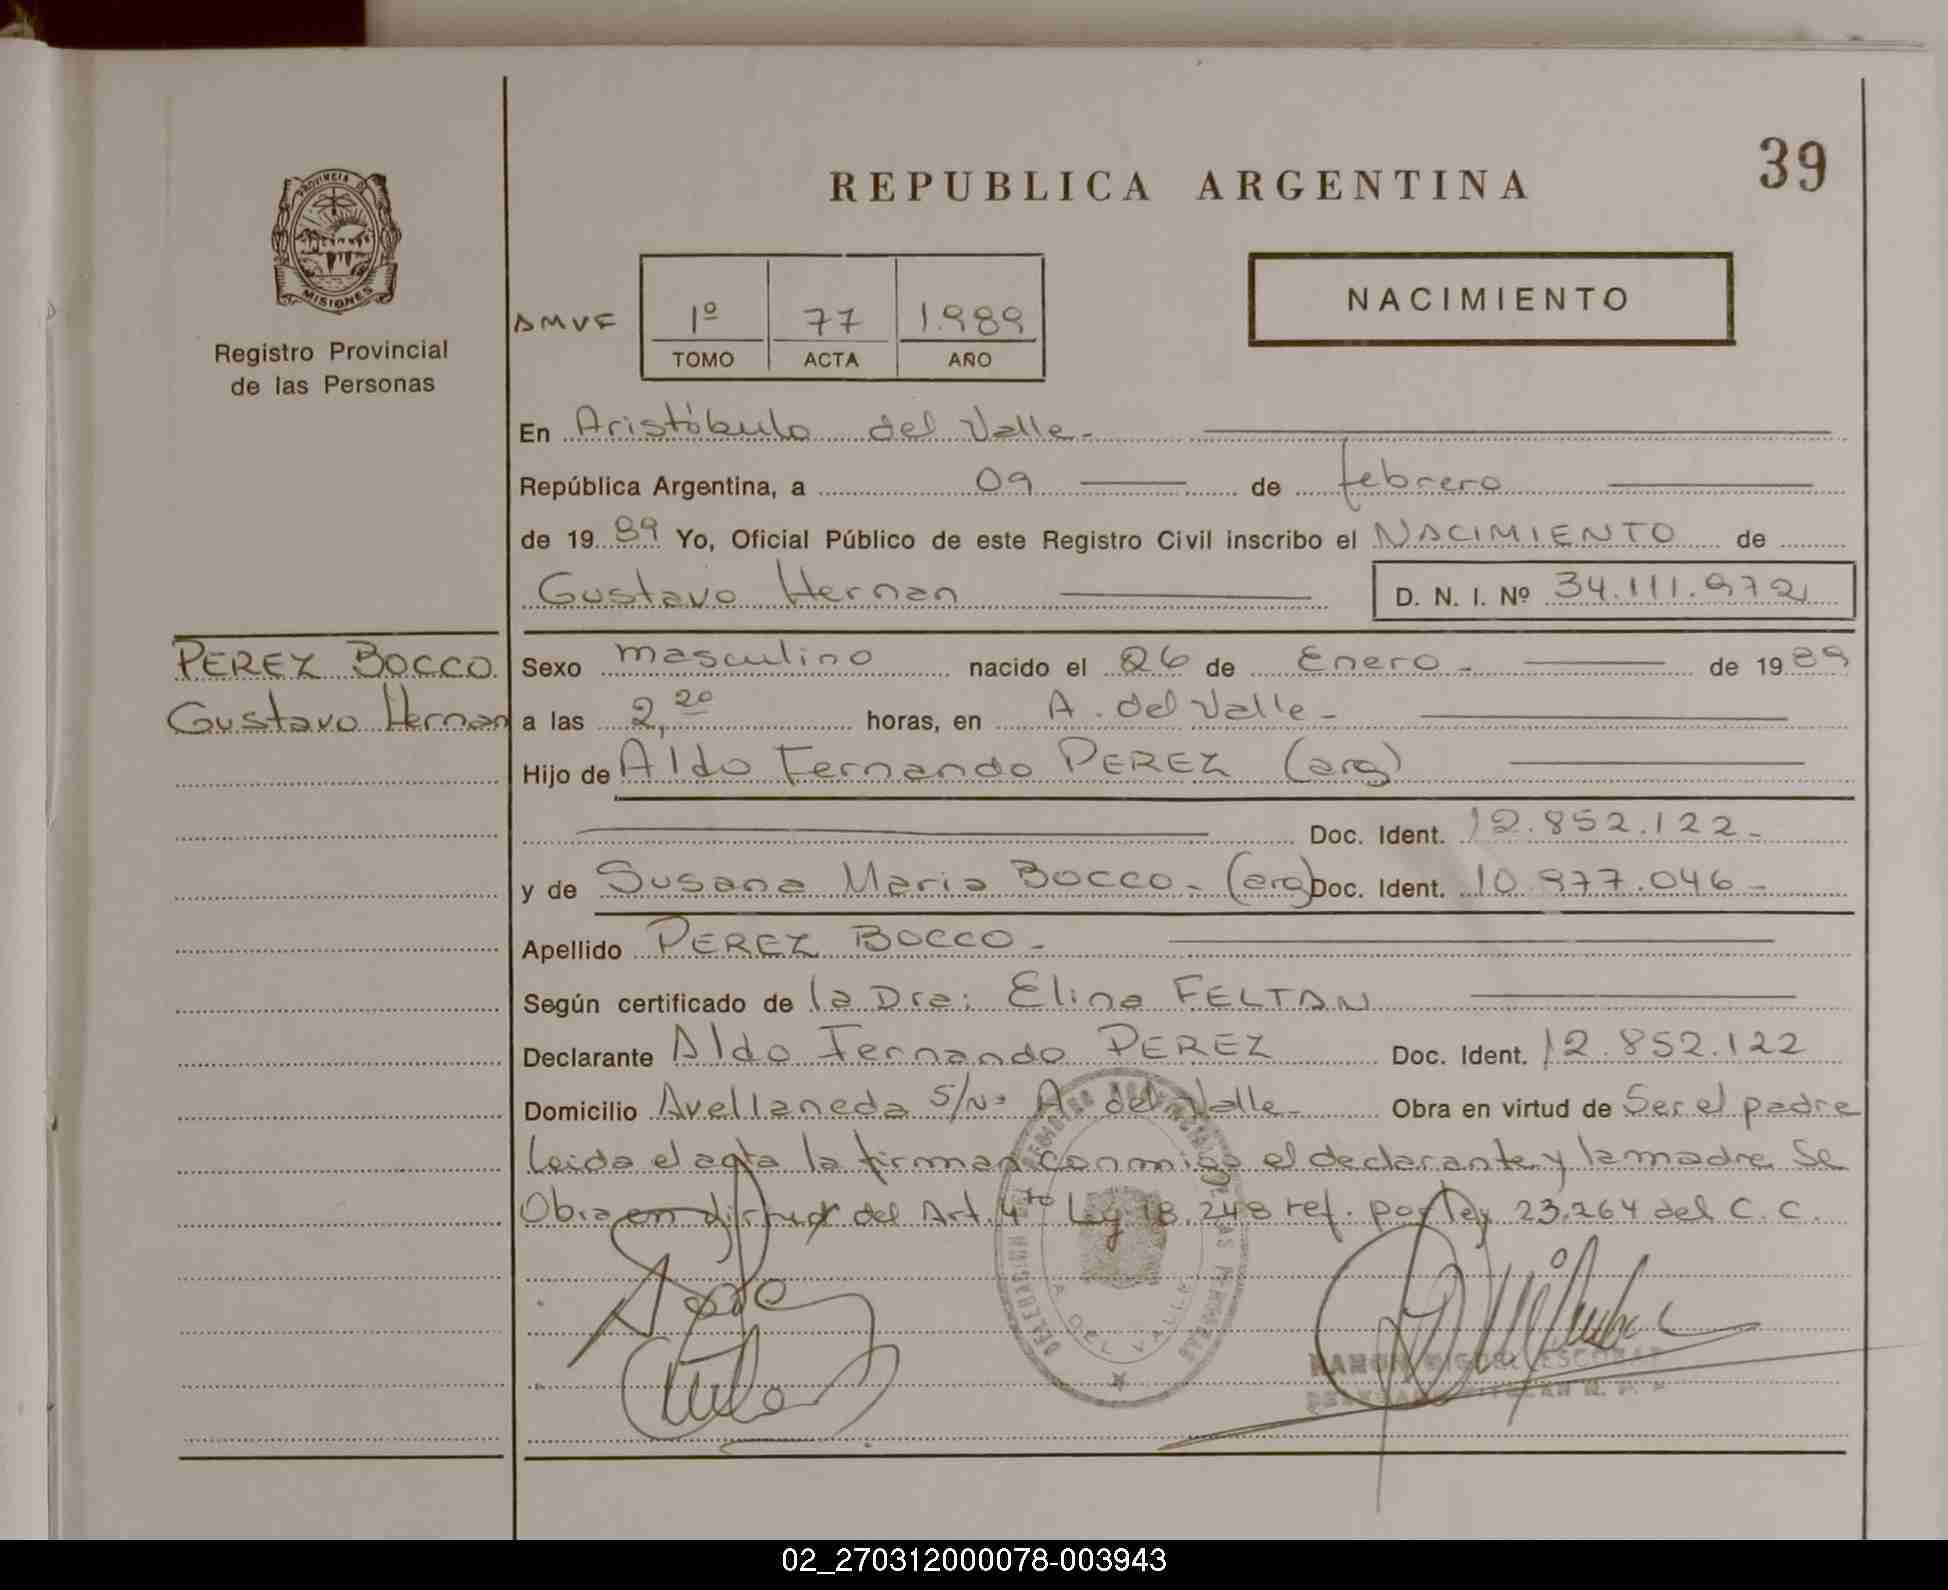 39
REPUBLICA ARGENTINA
PROVINCIA DE
MISIONES
Registro Provincial
de las Personas
NACIMIENTO
1º 77 1.989
TOMO ACTA AÑO
En Aristóbulo del Valle.-
República Argentina, a 09 de febrero
de 1989 Yo, Oficial Público de este Registro Civil inscribo el NACIMIENTO de
Gustavo Hernan D. N. I. Nº 34.111.972
PEREZ BOCCO
Gustavo Hernan
Sexo masculino nacido el 26 de Enero.- de 1989
a las 2,20 horas, en A. del Valle-
Hijo de Aldo Fernando PEREZ (arg)
Doc. Ident. 12.852.122-
y de Susana Maria BOCCO.- (arg) Doc. Ident. 10.977.046-
Apellido PEREZ BOCCO.-
Según certificado de la Dra: Elina FELTAN
Declarante Aldo Fernando PEREZ Doc. Ident. 12.852.122
Domicilio Avellaneda S/Nº A. del Valle- Obra en virtud de Ser el padre
Leida el acta la firman conmigo el declarante y la madre Se
Obra en virtud del Art. 4to Ley 18.248 ref. por ley 23.264 del C.C.
A. DEL VALLE
RAMON MIGUEL ESCOBAR
02_270312000078-003943